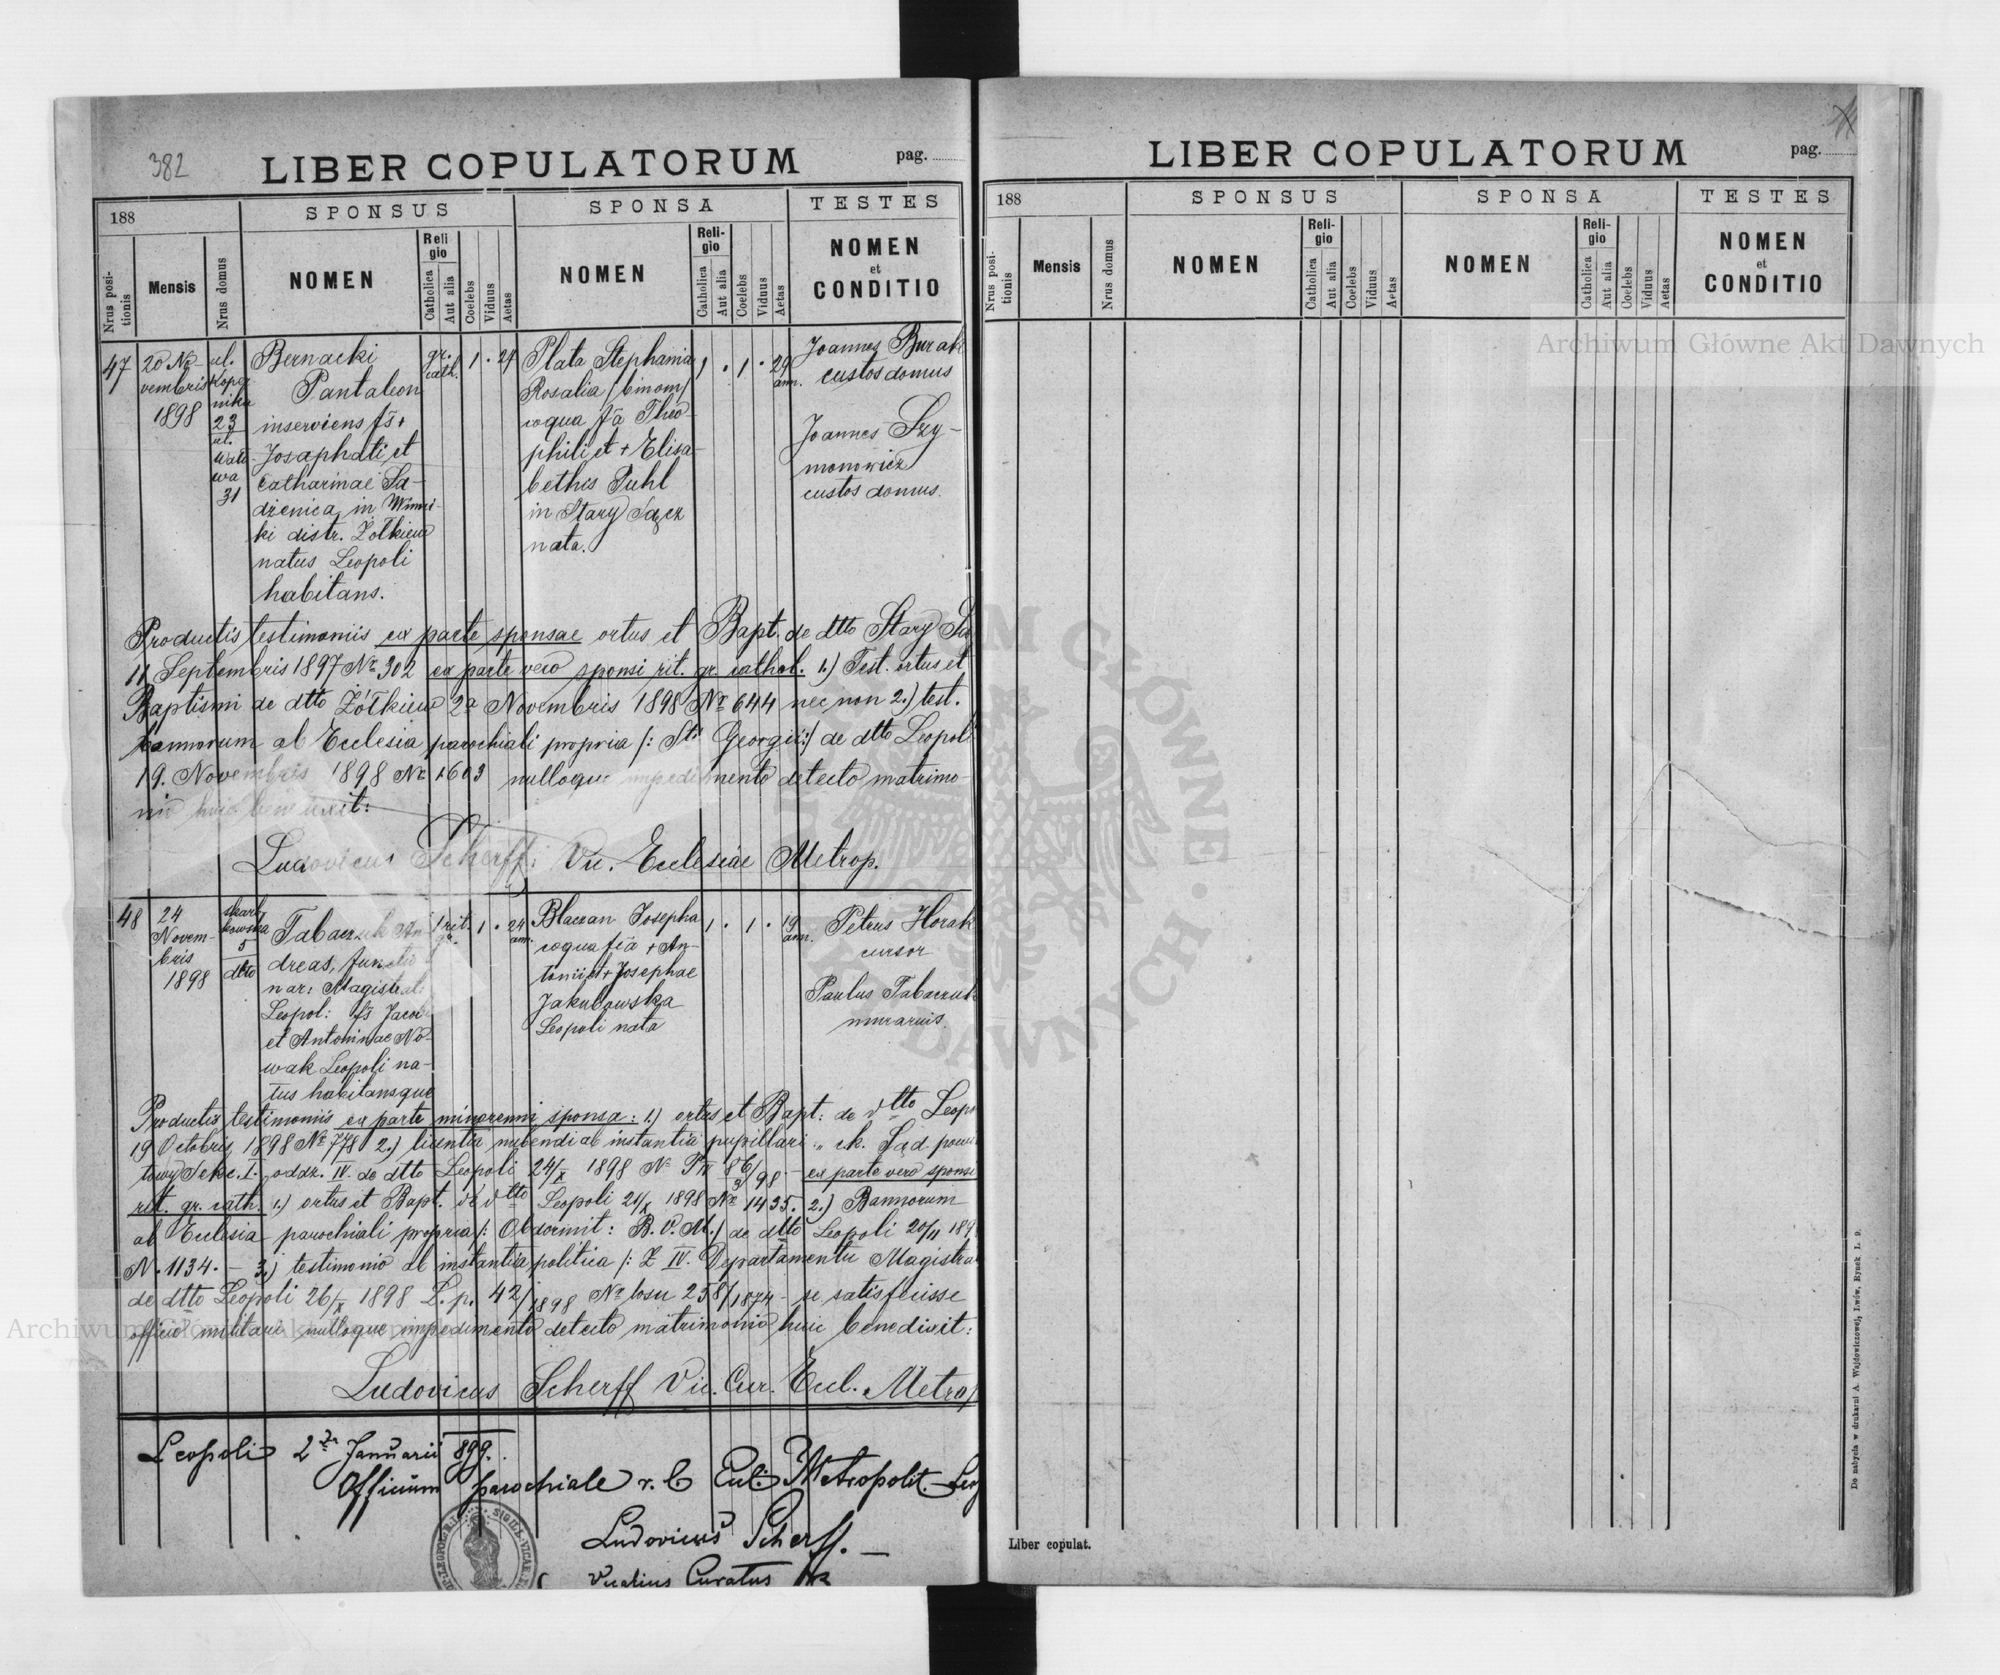 382
LIBER COPULATORUM
pag.
188
SPONSUS
SPONSA
TESTES
Nrus positionis
Mensis
Nrus domus
NOMEN
Religio
Catholica
Aut alia
Coelebs
Viduus
Aetas
NOMEN
Religio
Catholica
Aut alia
Coelebs
Viduus
Aetas
NOMEN
et
CONDITIO
47
20 No
vembris
1898
ul.
Koper
nika
23
ul.
31
Bernacki
Pantaleon
inserviens fs +
Josaphati et
Catharinae Sa-
dżenica in Winni-
ki distr. Żółkiew
natus Leopoli
habitans.
gr.
cath.
1 . 27
Plata Stephania
Rosalia /binom/
coqua fa Theo-
phili et + Elisa-
bethis Puhl
in Stary Sącz
nata.
1 . 1 . 29
ann.
Joannes Burak
custos domus
Joannes Szy-
monowicz
custos domus.
Productis testimoniis ex parte sponsae ortus et Bapt. de dtto Stary Są
11 Septembris 1897 Nr 302 ex parte vero sponsi rit. gr. cathol. 1.) Test. ortus et
Baptismi de dtto Żółkiew 2a Novembris 1898 Nr 644 nec non 2.) test.
bannorum ab Ecclesia parochiali propria /: Sti Georgii :/ de dtto Leopoli
19. Novembris 1898 Nr 1603 nulloque impedimento detecto matrimo-
nio huic benedixit:
Ludovicus Scherff: Vic. Ecclesiae Metrop.
48
24
Novem-
bris
1898
skarb
kowska
5
dtto
Tabaczuk An
dreas, functio
nar: Magistral:
Leopol: fs Jacobi
et Antoninae No-
wak Leopoli na-
tus habitansque
1 rit.
gr.
1 . 24
ann.
Blaczan Josepha
coqua fia + An-
tonii et + Josephae
Jakubowska
Leopoli nata
1 . 1 . 19
ann.
Petrus Horak
cursor
Paulus Tabaczuk
murarius.
Productis testimoniis ex parte minorenni sponsa: 1.) ortus et Bapt: de dtto Leopo
19 Octobris 1898 Nr 778 2.) licentia nubendi ab instantia pupillari „ ck. Sąd powia
towy Sekc. I. oddz. IV. de dtto Leopoli 24/X 1898 Nr P IV 86/98 - ex parte vero sponsi
rit. gr. cath. 1.) ortus et Bapt. de dtto Leopoli 21/X 1898 Nr 1435. 2.) Bannorum
ab Ecclesia parochiali propria /: Obdormit: B. V. M./ de dtto Leopoli 20/11 189
N. 1134. - 3.) testimonio ab instantia politica /: Z IV. Departamentu Magistra
de dtto Leopoli 26/X 1898 L. p. 42/1898 Nr losu 258/1874 - se satisfecisse
officio militari nulloque impedimento detecto matrimonio huic benedixit:
Ludovicus Scherff Vic. Cur. Eccl. Metrop
Leopoli 2 Januarii 899.
Officium parochiale r. l. Eccl: Metropolit. Leop
Ludovicus Scherff.
Vicarius Curatus
LIBER COPULATORUM
pag.
188
SPONSUS
SPONSA
TESTES
Nrus positionis
Mensis
Nrus domus
NOMEN
Religio
Catholica
Aut alia
Coelebs
Viduus
Aetas
NOMEN
Religio
Catholica
Aut alia
Coelebs
Viduus
Aetas
NOMEN
et
CONDITIO
Archiwum Główne Akt Dawnych
Archiwum Główne Akt Dawnych
Liber copulat.
Do nabycia w drukarni A. Wajdowiczowej, Lwów, Rynek L. 9.